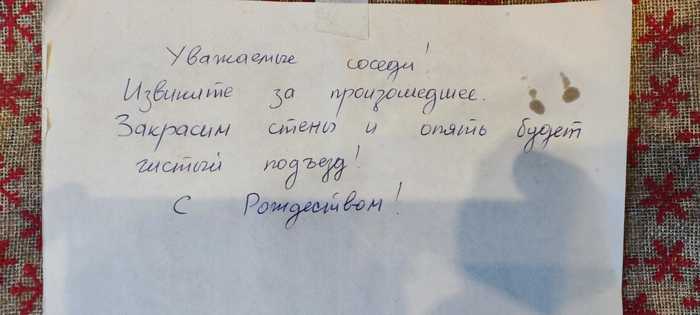 Уважаемые соседи!
Извините за произошедшее.
Закрасим стены и опять будет
чистый подъезд!
С Рождеством!